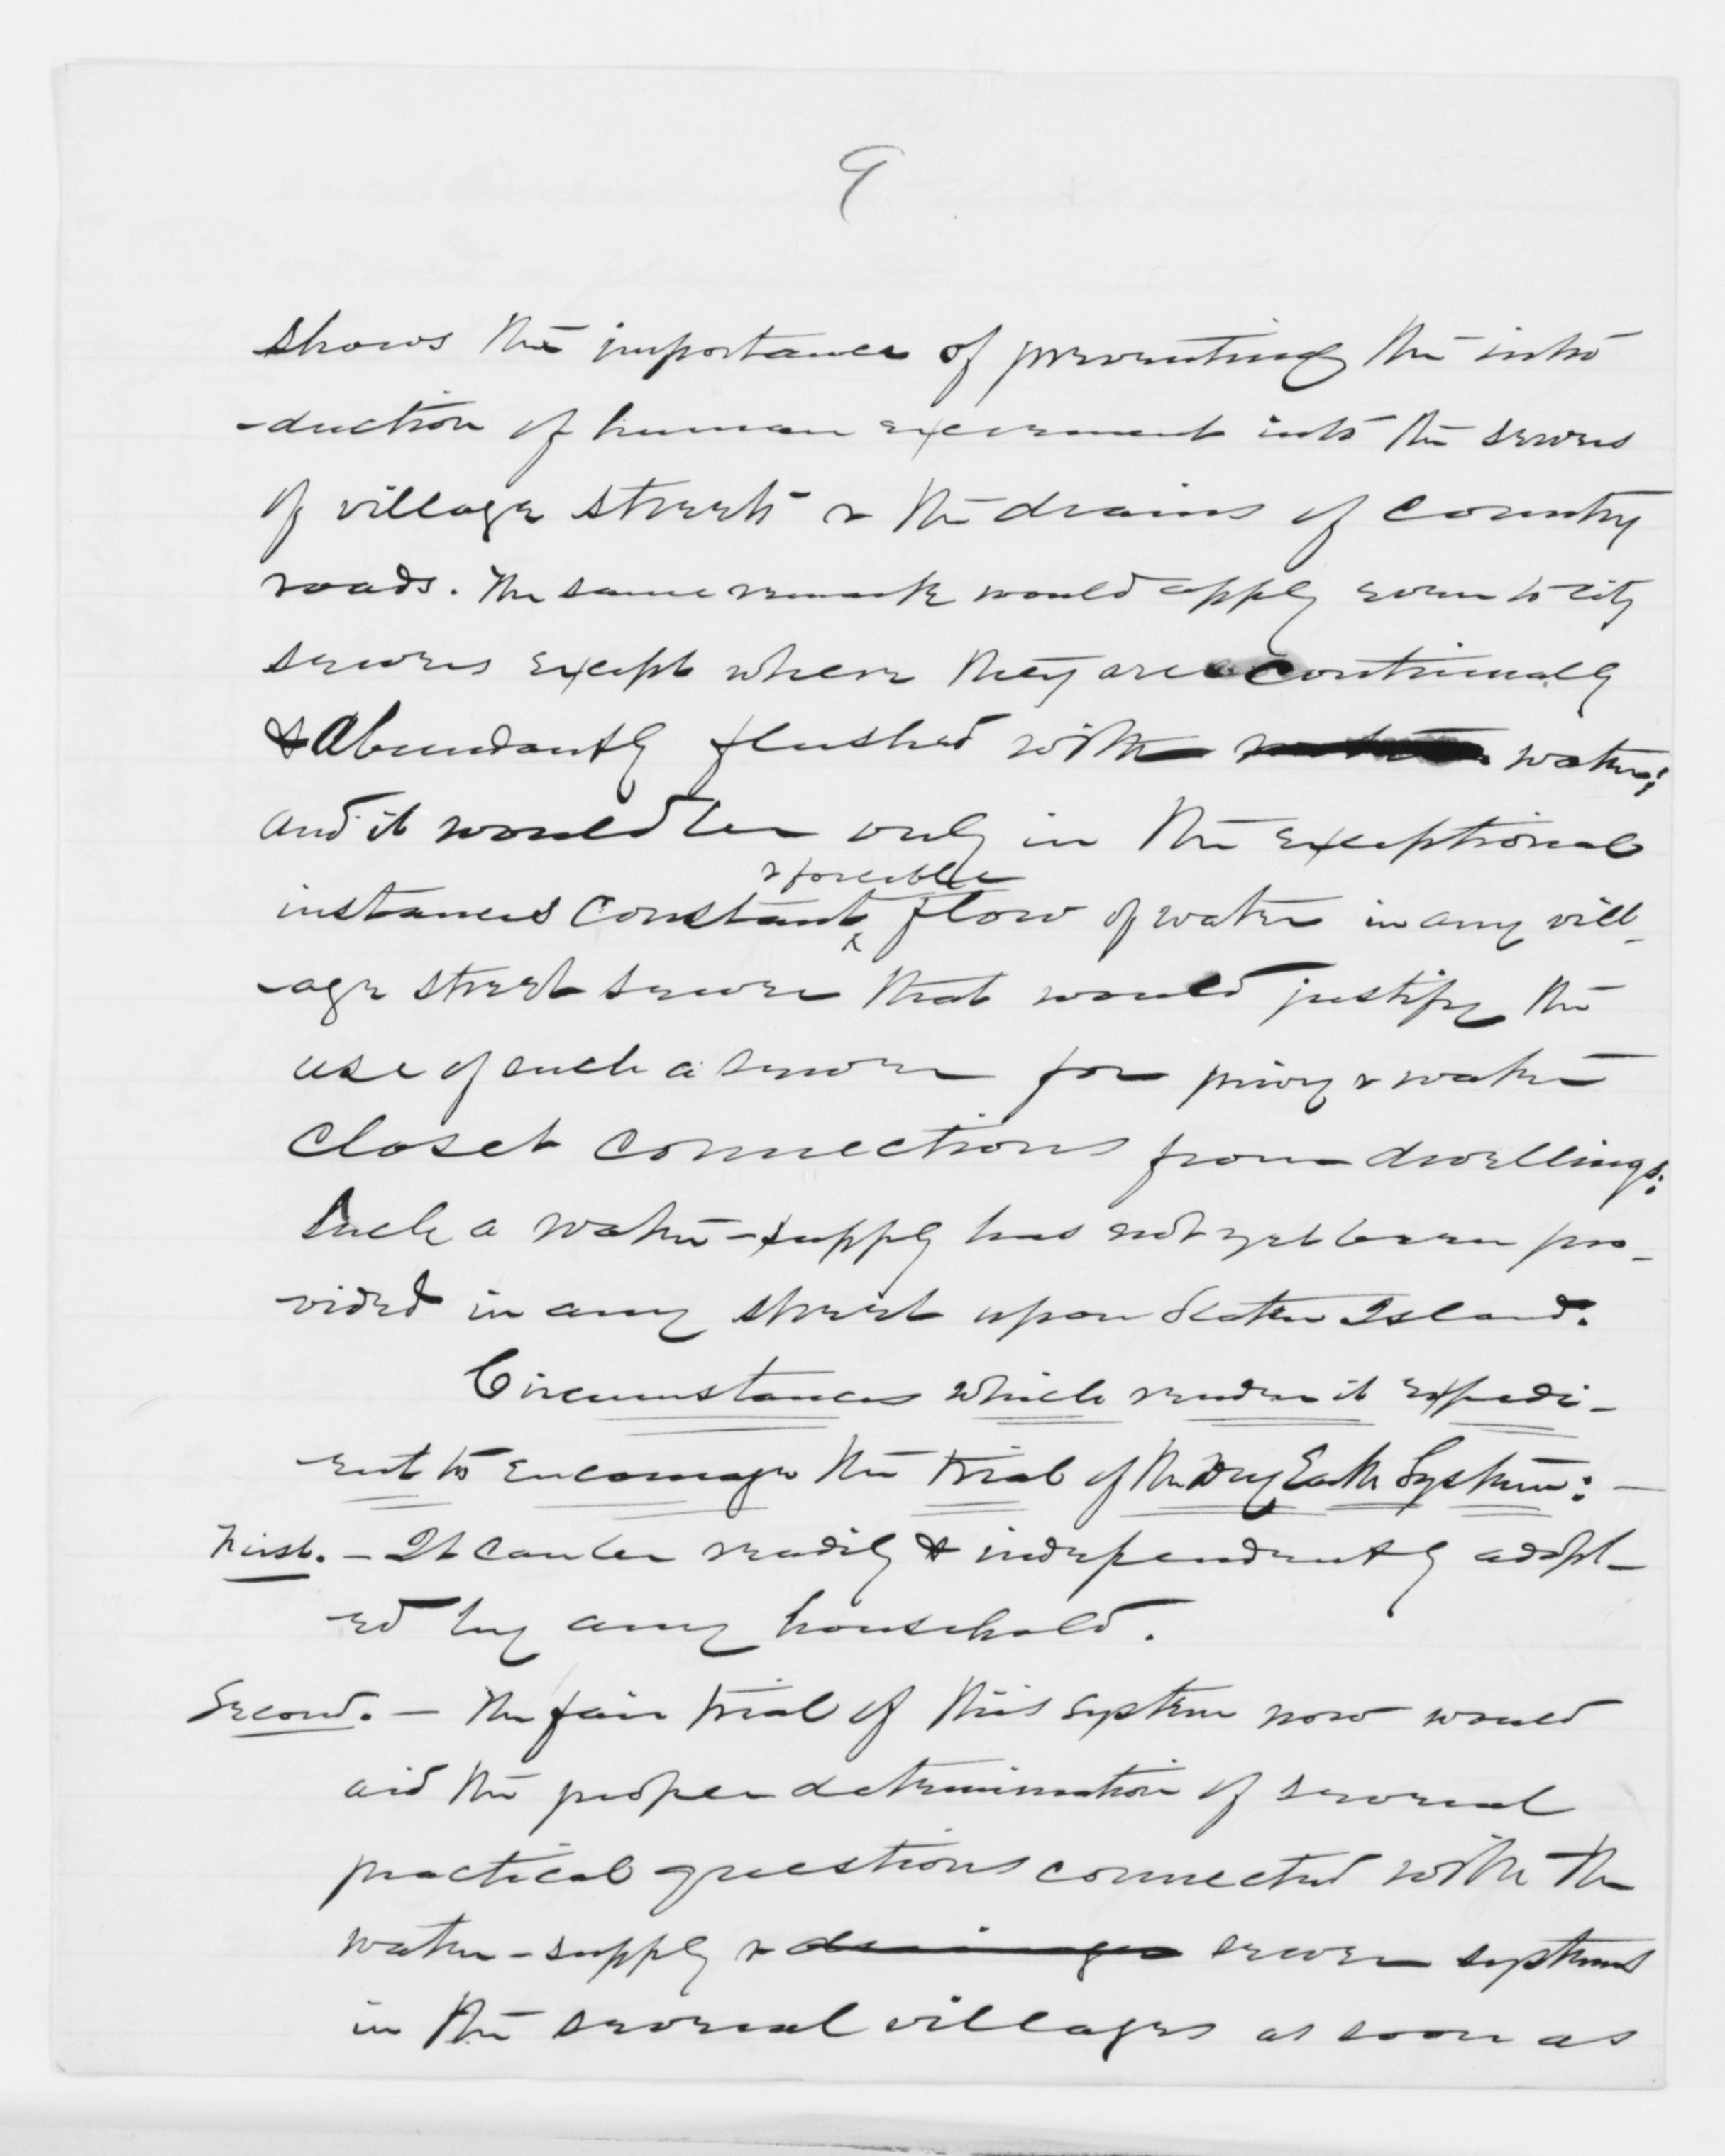 9
shows the importance of preventing the intro
-duction of human excrement into the sewers
of village streets & the drains of country
roads. The same remark would apply even to city
sewers except where they are continually
& abundantly flushed with water;
and it would be only in the exceptional
& forcible
instances constant flow of water in any vill-
-age street sewer that would justify the
use of such a sewer for privy & water
closet connections from dwellings:
Such a water-supply has not yet been pro-
vided in any street upon Staten Island.
Circumstances which render it expedi-
ent to encourage the trial of the Dry Earth System: —
First. — It can be readily & independently adopt-
ed by any household.
Second. — The fair trial of this system now would
aid the proper determination of several
practical questions connected with the
water-supply & drainage sewer systems
in the several villages as soon as